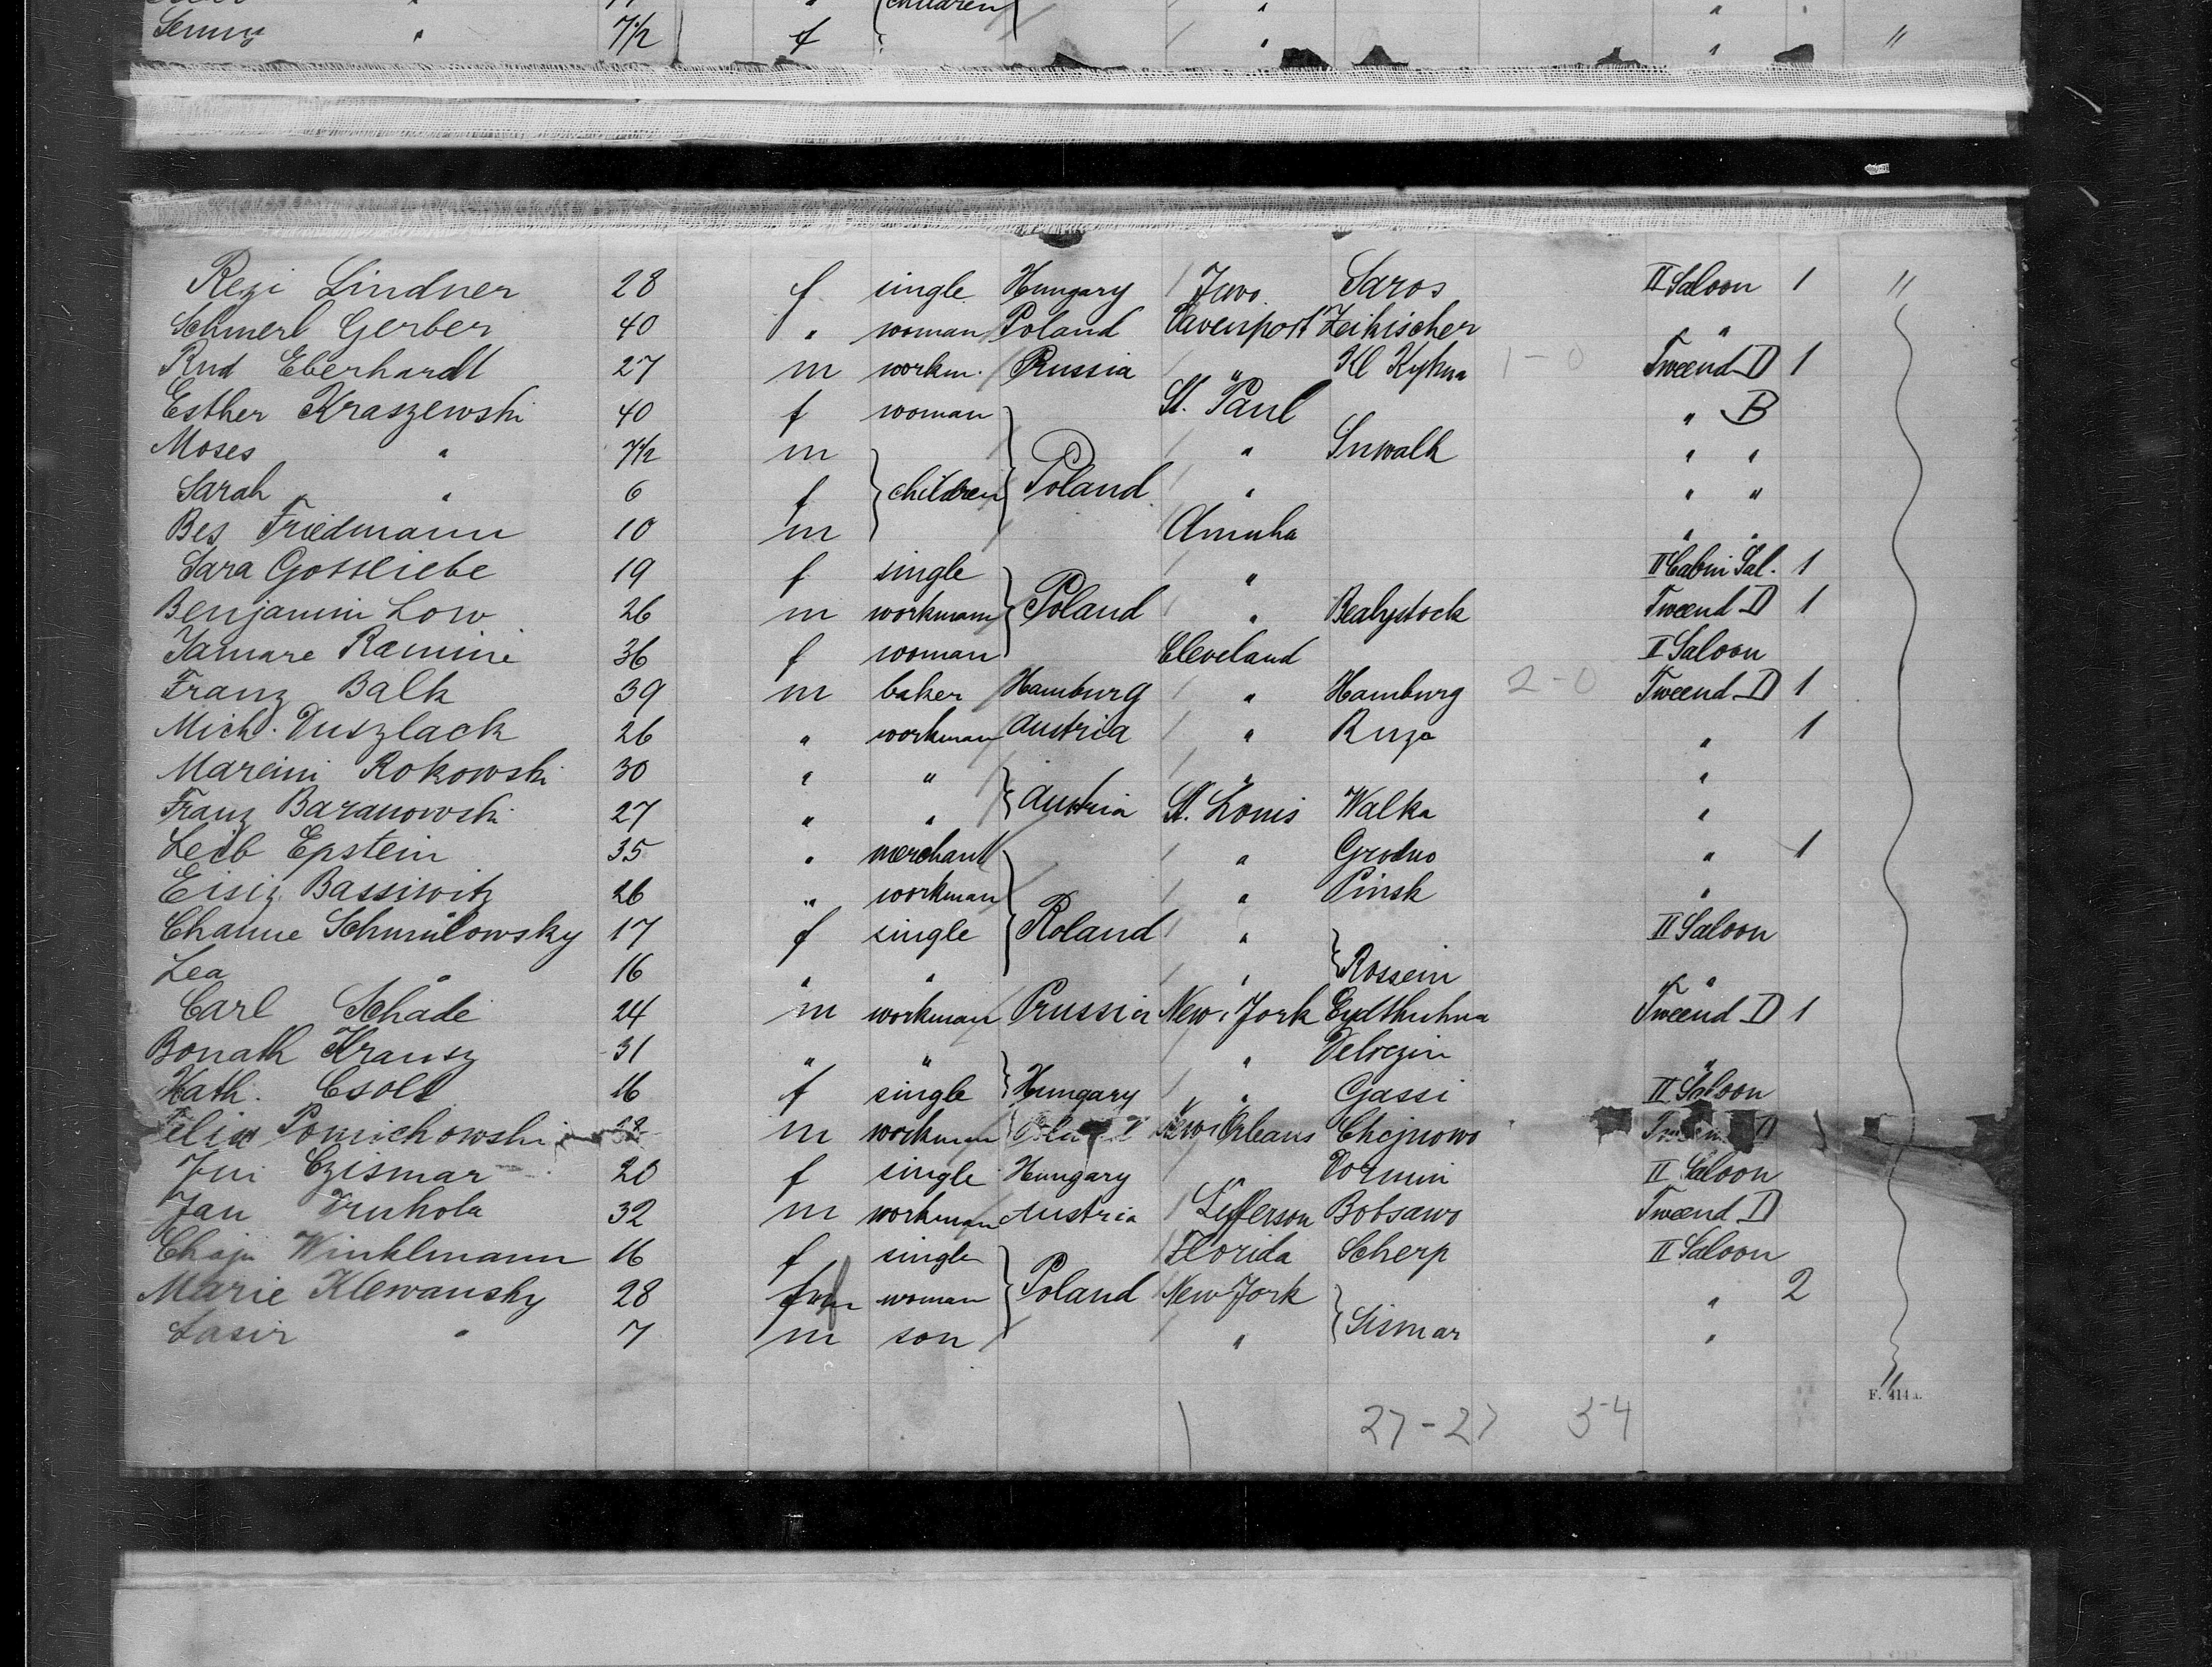 children
Senny " 7½ f " " "
Rezi Lindner 28 f single Hungary Jowo. Saros II Saloon 1 "
Schmerl Gerber 40 " woman Poland Davenport Zeihischer "
Rud Eberhardt 27 m workm. Russia " Kl 1-0 Tweend D 1
Esther Kraszewski 40 f woman St. Paul " B
Moses " 7½ m " Suwalk " "
Sarah " 6 f children Poland " " "
Bes Friedmann 10 m Amuha " "
Sara Gottliebe 19 f single " II Cabin Sal. 1
Benjamin Low 26 m workmann Poland " Bealystock Tweend D 1
Tamare Ramine 36 f woman Cleveland II Saloon
Franz Balk 39 m baker Hamburg " Hamburg 2-0 Tweend D 1
Mich. Duszlack 26 " workman Austria " Ruza " 1
Marcini Rokowski 30 " " " "
Franz Baranowski 27 " " Austria St. Louis Walka "
Leib Epstein 35 " merchant " Grodno " 1
Eisig Bassiwitz 26 " workman " Pinsk "
Channe Schmulowsky 17 f single Poland " II Saloon
Lea " 16 " " " Rossein "
Carl Schade 24 m workman Prussia New York Eydtkuhna Tweend D 1
Bonath Krausz 31 " " " Velvezin "
Kath. Csoll 16 f single Hungary " Gassi II Saloon
Felix Pomichowski 28 m workman New Orleans Chojnowo Tweend D
Jui Czismar 20 f single Hungary " Dormin II Saloon
Jan Truhola 32 m workman Austria Jefferson Bobsawo Tweend D
Chaje Winklmann 16 f single Florida Scherp II Saloon
Marie Klewansky 28 f woman Poland New York " 2
Lasir " 7 m son " Sismar "
F. 414a.
27-27 54